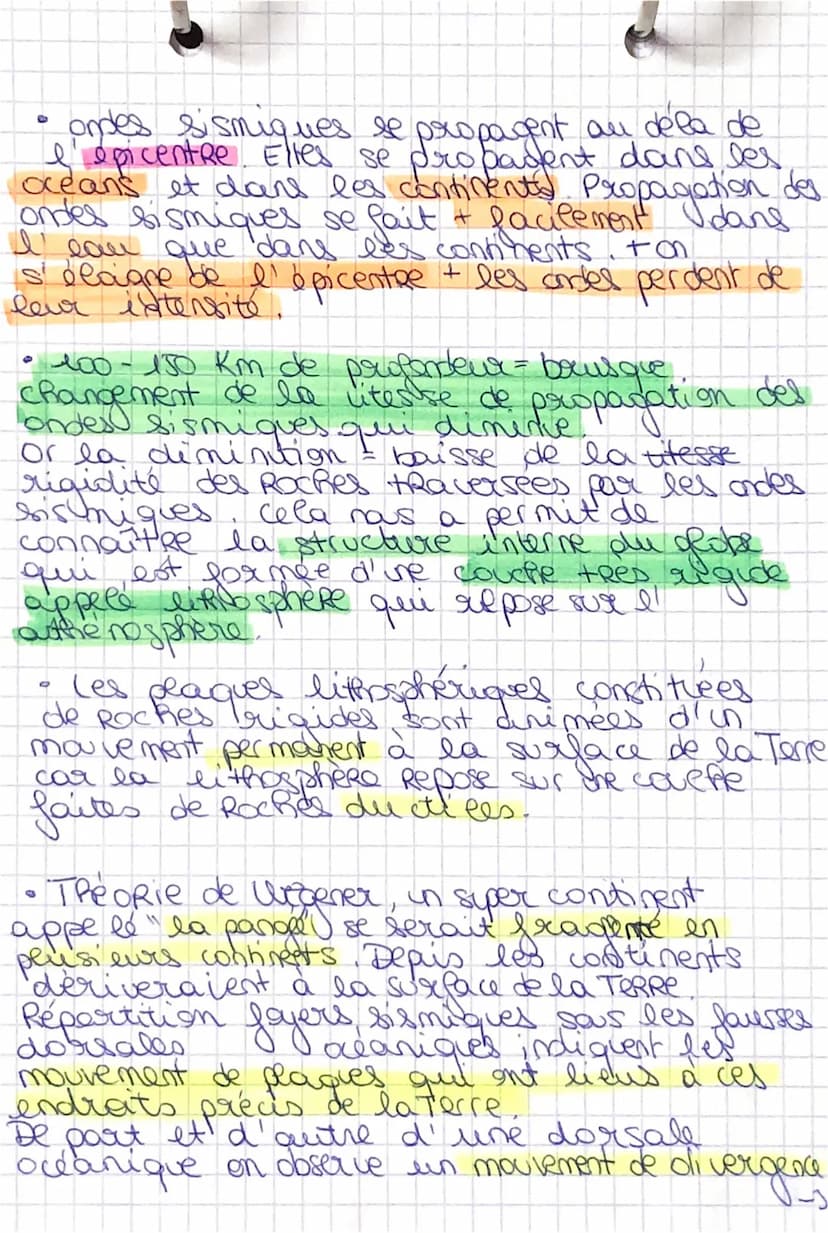 • ondes sismiques se propagent au déla de
l'épicentre. Elles se propagent dans les
océans et dans les continents. Propagation des
ondes sismiques se fait + facilement dans
l'eau que dans les continents. + on
s'éloigne de l'épicentre + les ondes perdent de
leur intensité.
• 100 - 150 Km de profondeur = brusque
changement de la vitesse de propagation des
ondes sismiques qui diminue.
Or la diminution = baisse de la vitesse
rigidité des Roches traversées par les ondes
sismiques. Cela nous a permit de
connaître la structure interne du globe
qui est formée d'une couche tres rigide
appelé lithosphère qui repose sur l'
athénosphère.
• Les plaques lithosphériques constituées
de Roches rigides sont animées d'un
mouvement permanent à la surface de la Terre
car la lithosphère Repose sur une couche
faites de Roches ductiles.
• Théorie de Wegener, un super continent
appelé "la pangé" se serait fragmenté en
plusieurs continents. Depuis les continents
dériveraient à la surface de la TERRE.
Répartition foyers sismiques sous les fausses
dorsales océaniques indiquent les
mouvement de plaques qui ont lieus à ces
endroits précis de la Terre.
De part et d'autre d'une dorsale
océanique on observe un mouvement de divergence
→